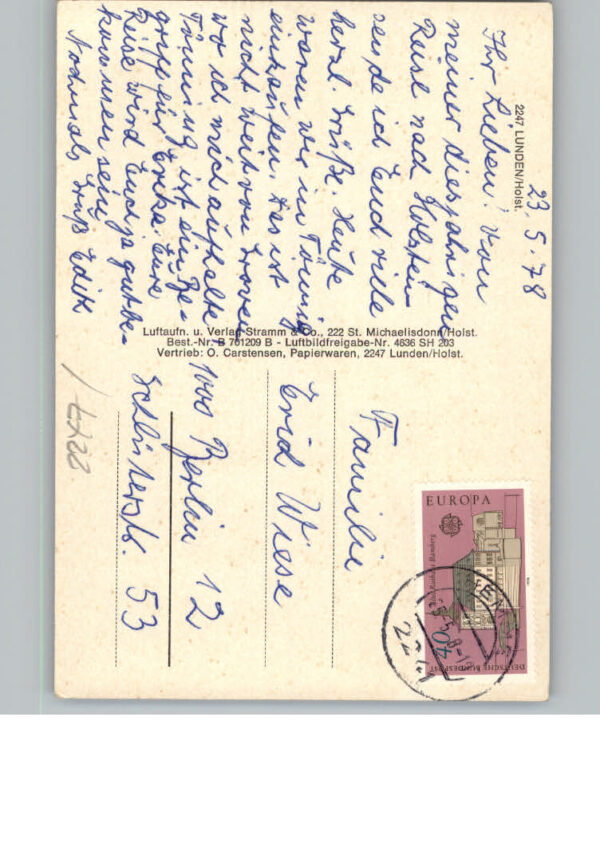 2247 LUNDEN/Holst.
23. 5. 78
Ihr Lieben! Von
meiner diesjährigen
Reise nach Holstein
sende ich Euch viele
herzl. Grüße. Heute
waren wir in Tönnig
einkaufen. Das ist
nicht weit von
wo ich mich aufhalte
Tönning ist ein Be-
griff für Erika. Eure
Reise wird Euch ja gut be-
kommen sein.
Nochmals Gruß Edith
Luftaufn. u. Verlag Stramm & Co., 222 St. Michaelisdonn/Holst.
Best.-Nr. B 701209 B - Luftbildfreigabe-Nr. 4636 SH 203
Vertrieb: O. Carstensen, Papierwaren, 2247 Lunden/Holst.
Familie
Erid Wiese
1000 Berlin 12
Schlüterstr. 53
EUROPA
Altes Rathaus Bamberg
40
DEUTSCHE BUNDESPOST